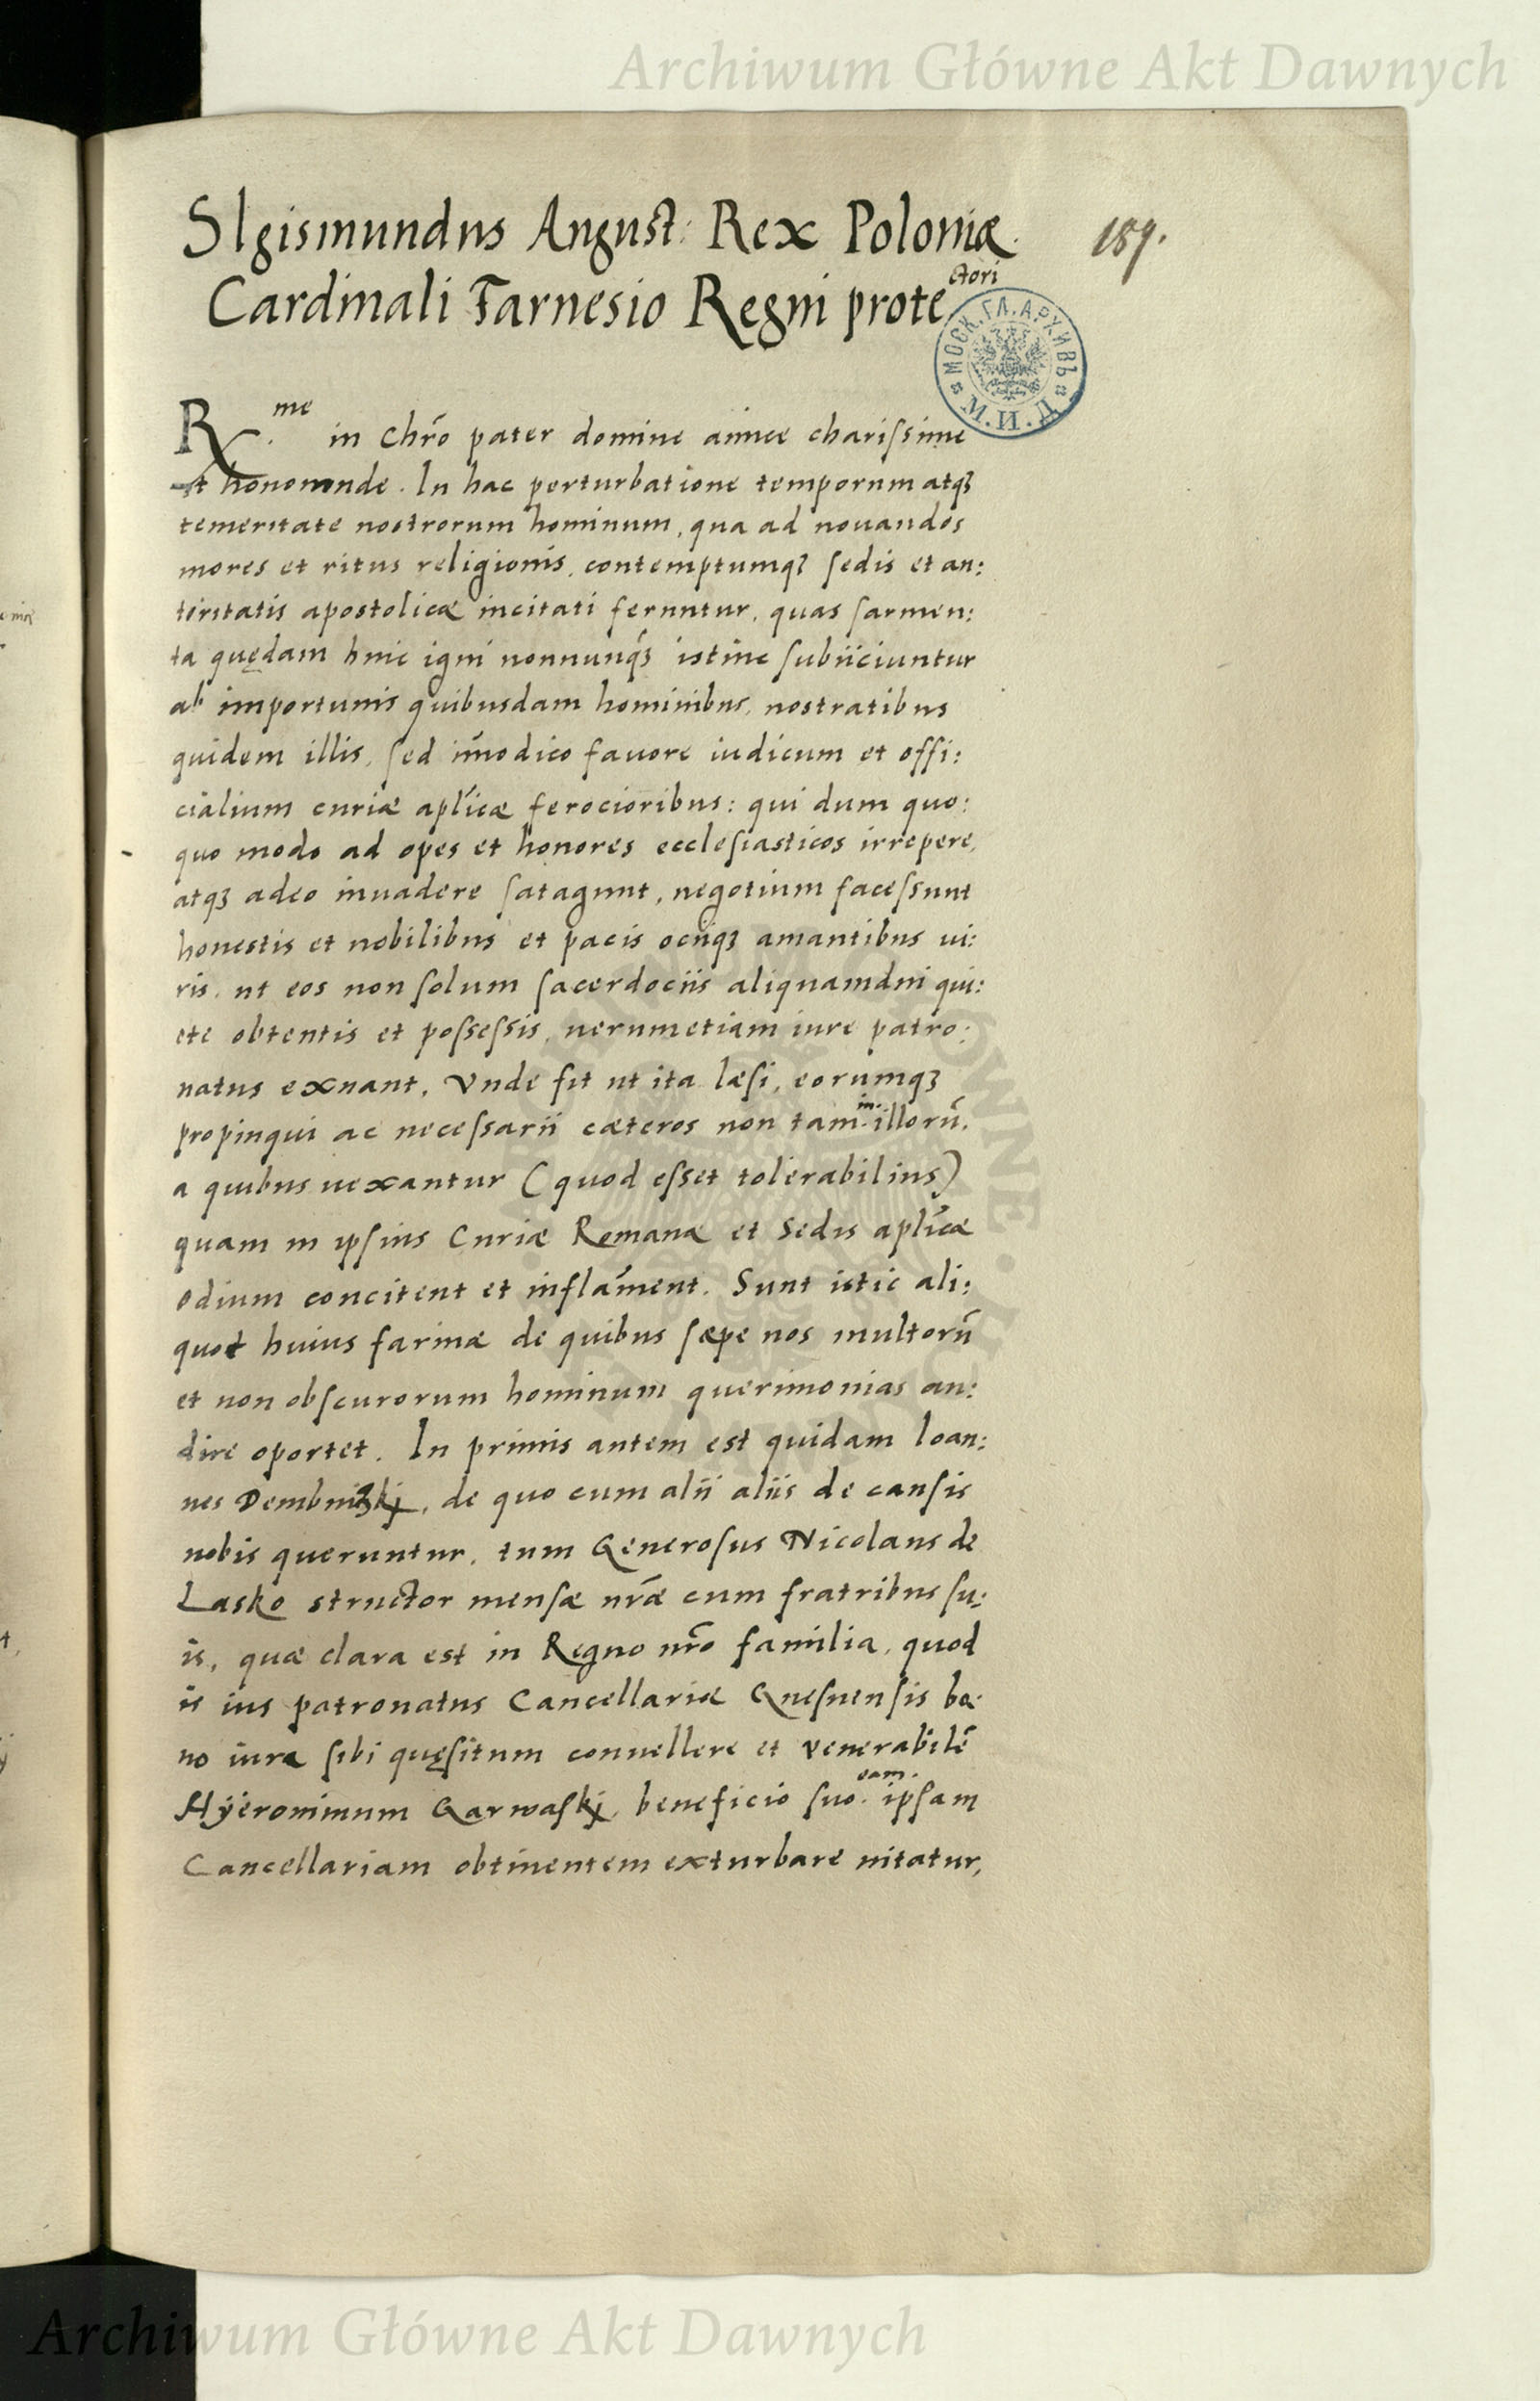 Archiwum Główne Akt Dawnych
SIgismundus August: Rex Poloniæ.
189.
Cardinali Farnesio Regni protectori
МОСК. ГЛ. АРХИВЪ М.И.Д.
R.me in Chr̃o pater domine amice charissime
et honorande. In hac perturbatione temporum atqꝫ
temeritate nostrorum hominum, qua ad nouandos
mores et ritus religionis, contemptumqꝫ sedis et au:
toritatis apostolicæ incitati feruntur, quas sarmen:
ta quędam huic igni nonnunq̃ꝫ istinc subiiciuntur
ab importunis quibusdam hominibus, nostratibus
quidem illis, sed im̃odico fauore iudicum et offi:
cialium curiæ apl̃icæ ferocioribus: qui dum quo:
quo modo ad opes et honores ecclesiasticos irrepere,
atqꝫ adeo inuadere satagunt, negotium facessunt
honestis et nobilibus et pacis ociiqꝫ amantibus ui:
ris, ut eos non solum sacerdociis aliquamdiu qui:
ete obtentis et possessis, uerumetiam iure patro:
natus exuant. Vnde fit ut ita læsi, eorumqꝫ
propinqui ac necessarii cæteros non tam in illorũ,
a quibus uexantur (quod esset tolerabilius)
quam in ipsius Curiæ Romanæ et Sedis apl̃icæ
odium concitent et inflam̃ent. Sunt istic ali:
quot huius farinæ de quibus sæpe nos multorũ
et non obscurorum hominum querimonias au:
dire oportet. In primis autem est quidam Ioan:
nes Dembniskj, de quo cum alii aliis de causis
nobis queruntur, tum Generosus Nicolaus de
Lasko structor mensæ nr̃æ cum fratribus su:
is, quæ clara est in Regno nr̃o familia, quod
is ius patronatus Cancellariæ Gnesnensis bo:
no iure sibi quęsitum conuellere et venerabilẽ
Hÿeronimum Garwaskj, beneficio suo eam ipsam
Cancellariam obtinentem exturbare nitatur,
Archiwum Główne Akt Dawnych